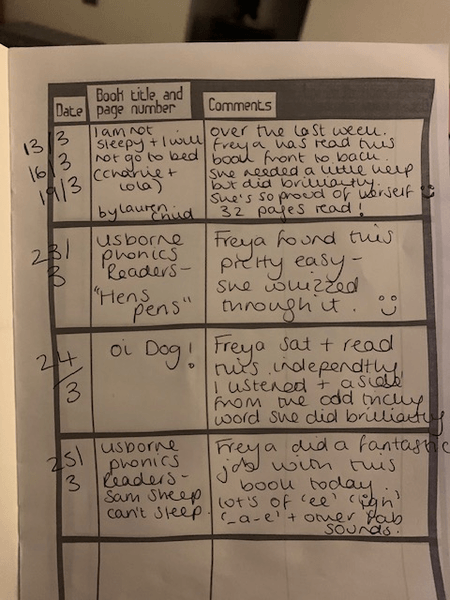 Date
Book title, and
page number
Comments
13/3
16/3
19/3
I am not
sleepy + I will
not go to bed
(charlie +
lola)
by lauren
child
over the last week.
Freya has read this
book front to back.
she needed a little help
but did brilliantly.
She's so proud of herself
32 pages read!
23/
3
usborne
phonics
Readers-
"Hens
pens"
Freya found this
pretty easy-
she whizzed
through it.
24
/3
Oi Dog!
Freya sat + read
this independtly
I listened + aside
from the odd tricky
word she did brilliantly
25/
3
usborne
phonics
Readers-
Sam Sheep
can't sleep.
Freya did a fantastic
job with this
book today.
lot's of 'ee' 'igh'
'_a-e' + other
sounds.